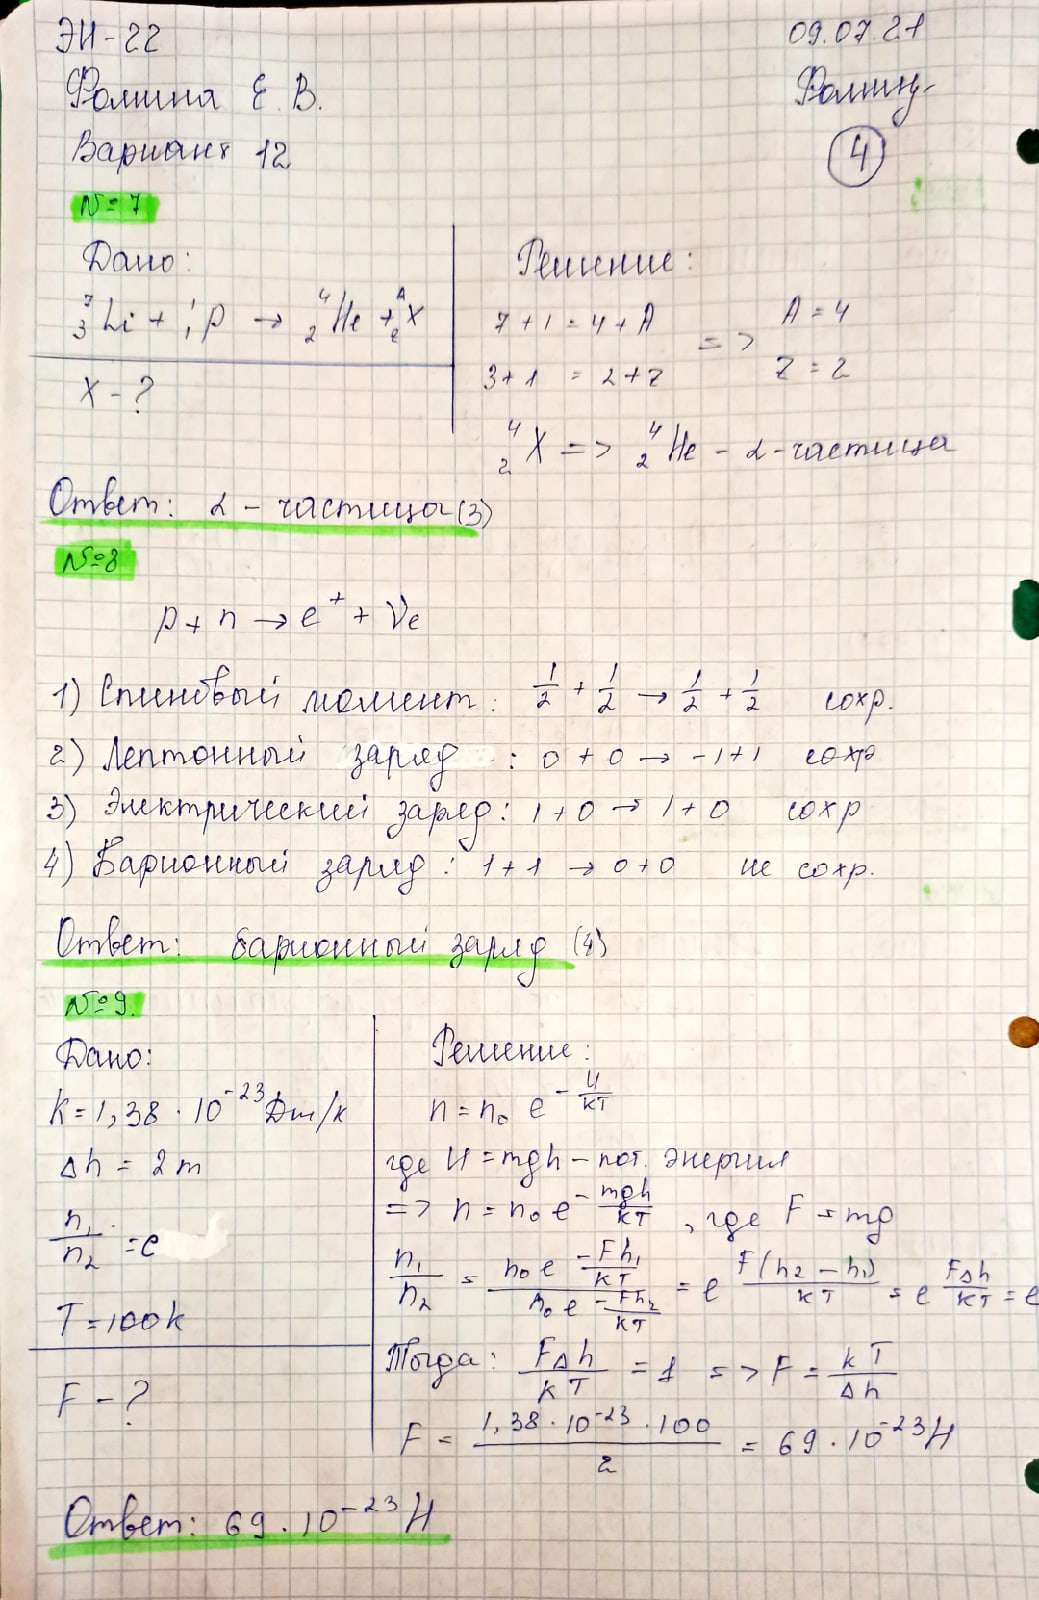 ЭН-22
09.07.21
Фомина Е. В.
Вариант 12
4
№7
Дано:
⁷₃Li + ¹₁p → ⁴₂He + ᴬ_zX
X - ?
Решение:
7 + 1 = 4 + A => A = 4
3 + 1 = 2 + Z Z = 2
⁴₂X => ⁴₂He - α - частица
Ответ: α - частица (3)
№8
p + n → e⁺ + νe
1) Спиновый момент: 1/2 + 1/2 → 1/2 + 1/2 сохр.
2) Лептонный заряд : 0 + 0 → -1+1 сохр
3) Электрический заряд: 1+0 → 1+0 сохр
4) Барионный заряд: 1+1 → 0+0 не сохр.
Ответ: барионный заряд (4)
№9.
Дано:
k = 1,38 · 10⁻²³ Дж/к
Δh = 2 m
n₁/n₂ = e
T = 100k
F - ?
Решение:
n = n₀ e^(-U/kT)
где U = mgh - пот. энергия
=> n = n₀ e^(-mgh/kT), где F = mg
n₁/n₂ = (n₀ e^(-Fh₁/kT))/(n₀ e^(-Fh₂/kT)) = e^(F(h₂ - h₁)/kT) = e^(FΔh/kT) = e
Тогда: FΔh/kT = 1 => F = kT/Δh
F = (1,38 · 10⁻²³ · 100)/2 = 69 · 10⁻²³ Н
Ответ: 69 · 10⁻²³ Н